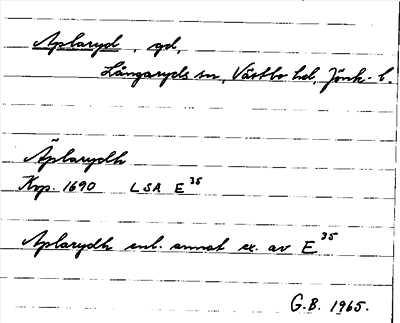 Aplaryd, gd,
Långaryds sn, Västbo hd, Jönk. l.
Äplarydh
Kop. 1690 LSA E³⁵
Aplarydh enl. annat ex. av E³⁵
G.B. 1965.